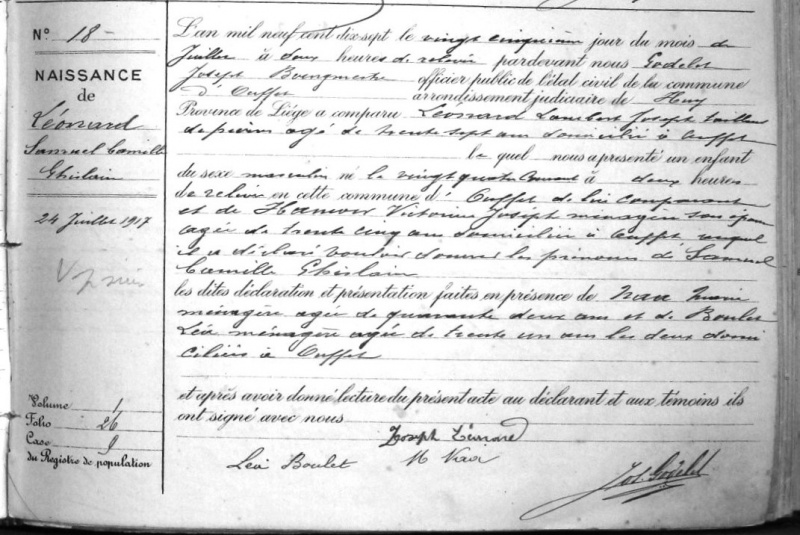 N° 18
NAISSANCE
de
Léonard
Samuel Camille
Ghislain
24 Juillet 1917
Volume 1
Folio 26
Case 9
du Registre de population
L'an mil neuf cent dix sept le vingt cinquième jour du mois de
Juillet à deux heures de relevée pardevant nous Godelet
Joseph Bourgmestre officier public de l'état civil de la commune
d'Ouffet arrondissement judiciaire de Huy
Province de Liège a comparu Léonard Lambert Joseph tailleur
de pierres agé de trente sept ans domicilié à Ouffet
le quel nous a présenté un enfant
du sexe masculin né le vingt quatre courant à deux heures
de relevée en cette commune d' Ouffet de lui comparant
et de Victorine Joseph ménagère son épouse
agée de trente cinq ans domiciliée à Ouffet auquel
il a déclaré vouloir donner les prénoms de Samuel
Camille Ghislain
les dites déclaration et présentation faites en présence de Marie
ménagère agée de quarante deux ans et de Boulet
Léa ménagère agée de trente un ans les deux domi
ciliées à Ouffet
et après avoir donné lecture du présent acte au déclarant et aux témoins ils
ont signé avec nous
Joseph Léonard
Léa Boulet M
Jos. Godelet